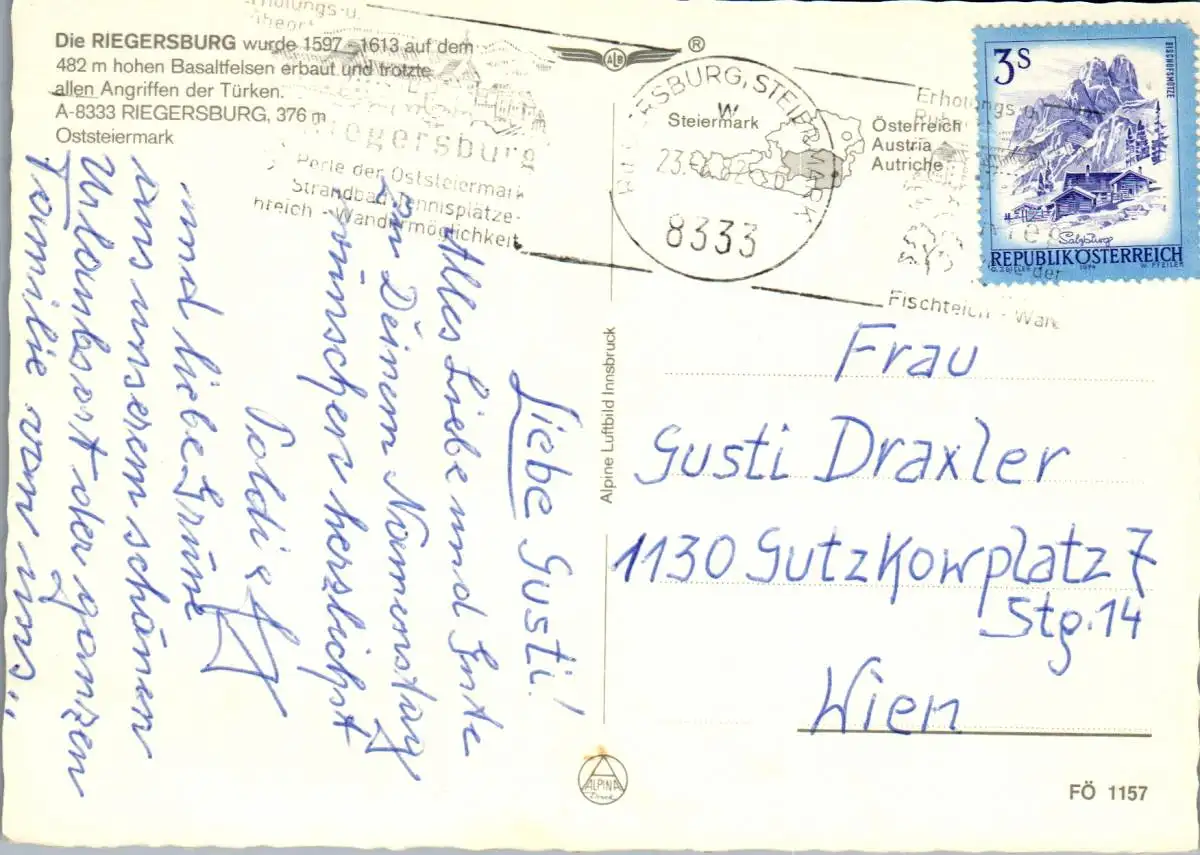 Die RIEGERSBURG wurde 1597 - 1613 auf dem
482 m hohen Basaltfelsen erbaut und trotzte
allen Angriffen der Türken.
A-8333 RIEGERSBURG, 376 m
Oststeiermark
Erholungs-u.
Riegersburg
Perle der Oststeiermark
Strandbad-Tennisplätze-
Fischteich - Wandermöglichkeit
ALB
®
RIEGERSBURG, STEIERMARK
W
8333
Steiermark
Österreich
Austria
Autriche
Erholungs-u.
Fischteich - Wan
3 S
BISCHOFSMÜTZE
Salzburg
REPUBLIK ÖSTERREICH
1974
W. PFEILER
Liebe Gusti!
Alles Liebe und Gute
zu Deinem Namenstag
wünschen herzlichst
Poldi &
und liebe Grüße
aus unserem schönen
Urlaubsort der ganzen
Familie von uns.
Alpine Luftbild Innsbruck
Frau
Gusti Draxler
1130 Gutzkowplatz 7
Stg. 14
Wien
ALPINA
Druck
FÖ 1157